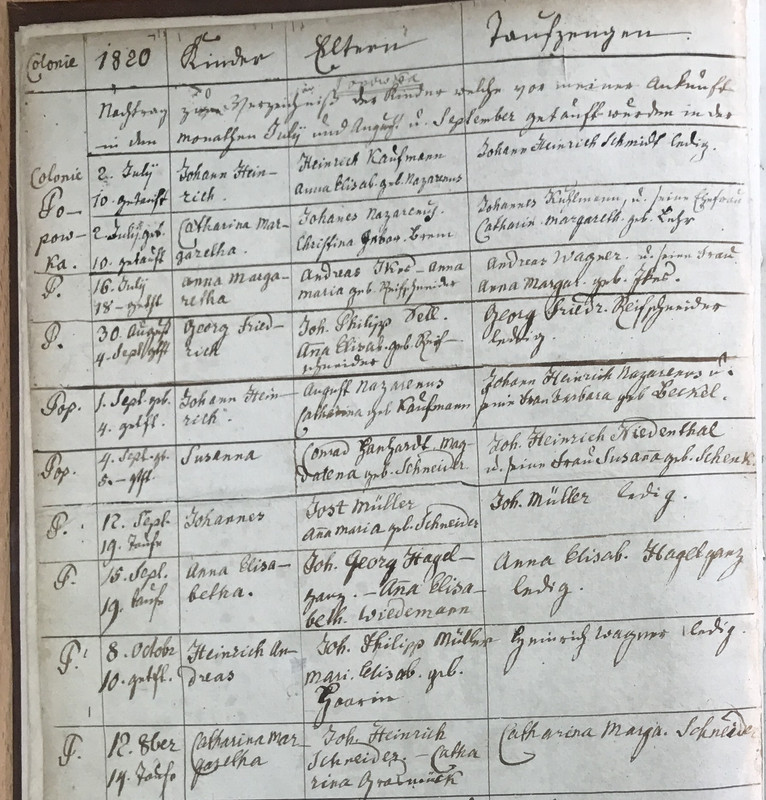 Colonie 1820 Kinder Eltern Taufzeugen
Nachtrag zum Verzeichniß der Kinder welche vor meiner Ankunft
in den monathen July und August u. September getauft wurden in der
Colonie
Po-
pow-
ka.
2. July
10. getauft
Johann Hein-
rich.
Heinrich Kaufmann
Anna Elisab. geb. Nazarenus
Johann Heinrich Schmidt ledig.
2 July geb.
10. getauft
Catharina Mar-
garetha.
Johanes Nazarenus.
Christina gebor. Brem
Johannes Kuhlmann, u. seine Ehefrau
Catharin. Margareth. geb. Lehr
P.
16. July
18 - getft
Anna Marga-
retha
Andreas Ikes - Anna
Maria geb. Reiffschneider
Andreas Wagner. u. seine Frau
Anna Margar. geb. Ikes.
P.
30. August
4. Sept. getft
Georg Fried-
rich
Joh. Philipp Dell.
Ana Elisab. geb. Reif-
schneider
Georg Friedr. Reifschneider
ledig.
Pop.
1. Sept. geb.
4. getft.
Johann Hein-
rich.
August Nazarenus
Catharina geb Kaufmann
Johann Heinrich Nazarenus u.
seine Frau Barbara geb Beckel.
Pop.
4. Sept. gb.
5. - gtft.
Susanna
Conrad Ganhardt Mag-
dalena geb. Schneider
Joh. Heinrich Niedenthal
u. seine Frau Susana geb. Schenk.
P.
12. Sept.
19. Taufe
Johannes
Jost Müller
Ana Maria geb. Schneider
Joh. Müller ledig.
P.
15. Sept.
19. taufe
Anna Elisa-
betha.
Joh. Georg Hagel-
ganz. - Ana Elisa-
beth. Wiedemann
Anna Elisab. Hagelganz
ledig.
P.
8. Octobr
10. getft.
Heinrich An-
dreas
Joh. Philipp Müller
Mari. Elisab. geb.
Haarin
Heinrich Wagner ledig.
P.
12. 8ber
14. Taufe
Catharina Mar-
garetha
Joh. Heinrich
Schneider. - Catha
rina Grasmück
Catharina Marga. Schneider